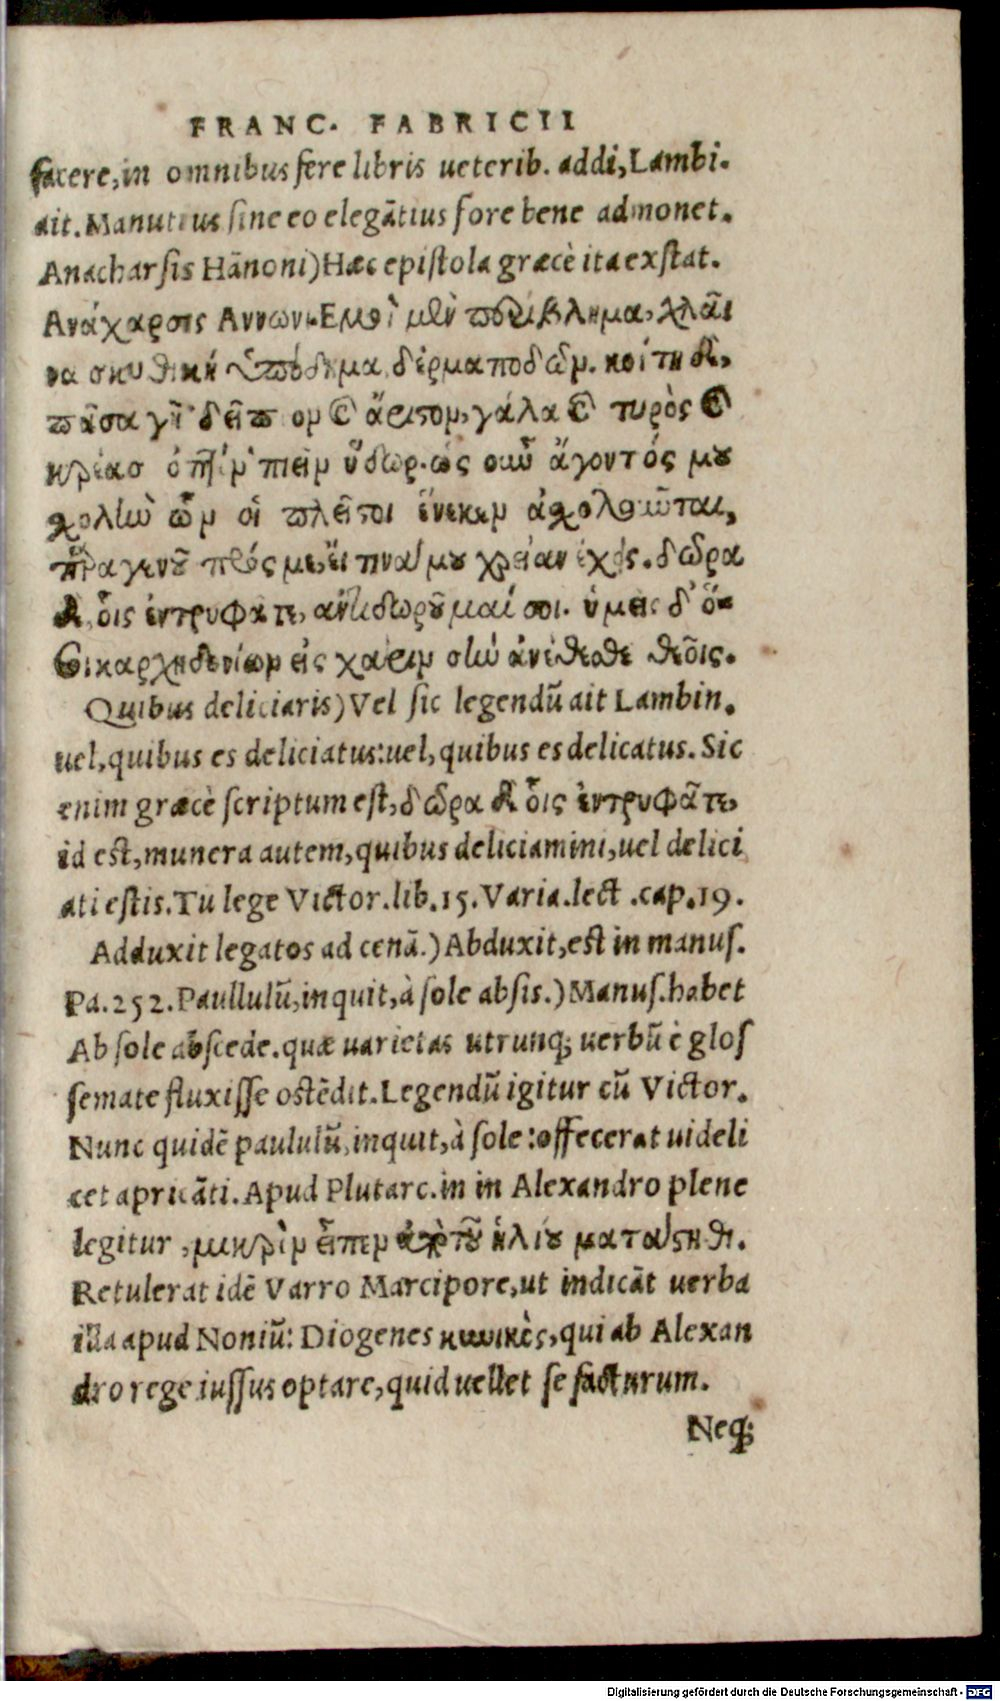 FRANC. FABRICII
facere, in omnibus fere libris ueterib. addi, Lambi.
ait. Manutius sine eo elegātius fore bene admonet.
Anacharsis Hānoni) Hæc epistola græcè ita exstat.
Ανάχαρσις Αννωνι. Εμοὶ μὲν περίβλημα, χλαῖ
να σκυθική ὑπόδημα, δέρμα ποδῶμ. κοίτη δὲ,
πᾶσα γῆ δεῖπ ομ καὶ ἄριστομ, γάλα καὶ τυρὸς καὶ
κρέασ ὀπτίμ πιεῖμ ὕδωρ. ὡς οὖν ἄγοντός μου
χολὴν ὧμ οἱ πλεῖστοι ἕνεκεμ ἀχολοιῶνται,
παραγενοῦ πρός με, εἴ τινα μου χρείαν ἔχεις. δῶρα
δὲ, οἷς ἐντρυφᾶτε, ἀντιδωροῦμαί σοι. ὑμεῖς δ' ὅ-
σοι καρχηδονίωμ εἰς χάριμ σὴν ἀνέθεσθε θεοῖς.
Quibus deliciaris) Vel sic legendū ait Lambin.
uel, quibus es deliciatus: uel, quibus es delicatus. Sic
enim græcè scriptum est, δῶρα δὲ οἷς ἐντρυφᾶτε,
id est, munera autem, quibus deliciamini, uel delici
ati estis. Tu lege Victor. lib. 15. Varia. lect. cap. 19.
Adduxit legatos ad cenā.) Abduxit, est in manus.
Pa. 252. Paullulū, inquit, à sole absis.) Manus. habet
Ab sole abscede. quæ uarietas utrunq; uerbū è glos
semate fluxisse ostēdit. Legendū igitur cū Victor.
Nunc quidē paululū, inquit, à sole: offecerat uideli
cet apricāti. Apud Plutarc. in in Alexandro plene
legitur, μικρὸμ εἶπεμ ἀπὸ τοῦ ἡλίου μετάστηθι.
Retulerat idē Varro Marcipore, ut indicāt uerba
illa apud Noniū: Diogenes κωνικὲς, qui ab Alexan
dro rege iussus optare, quid uellet se facturum.
Neq;